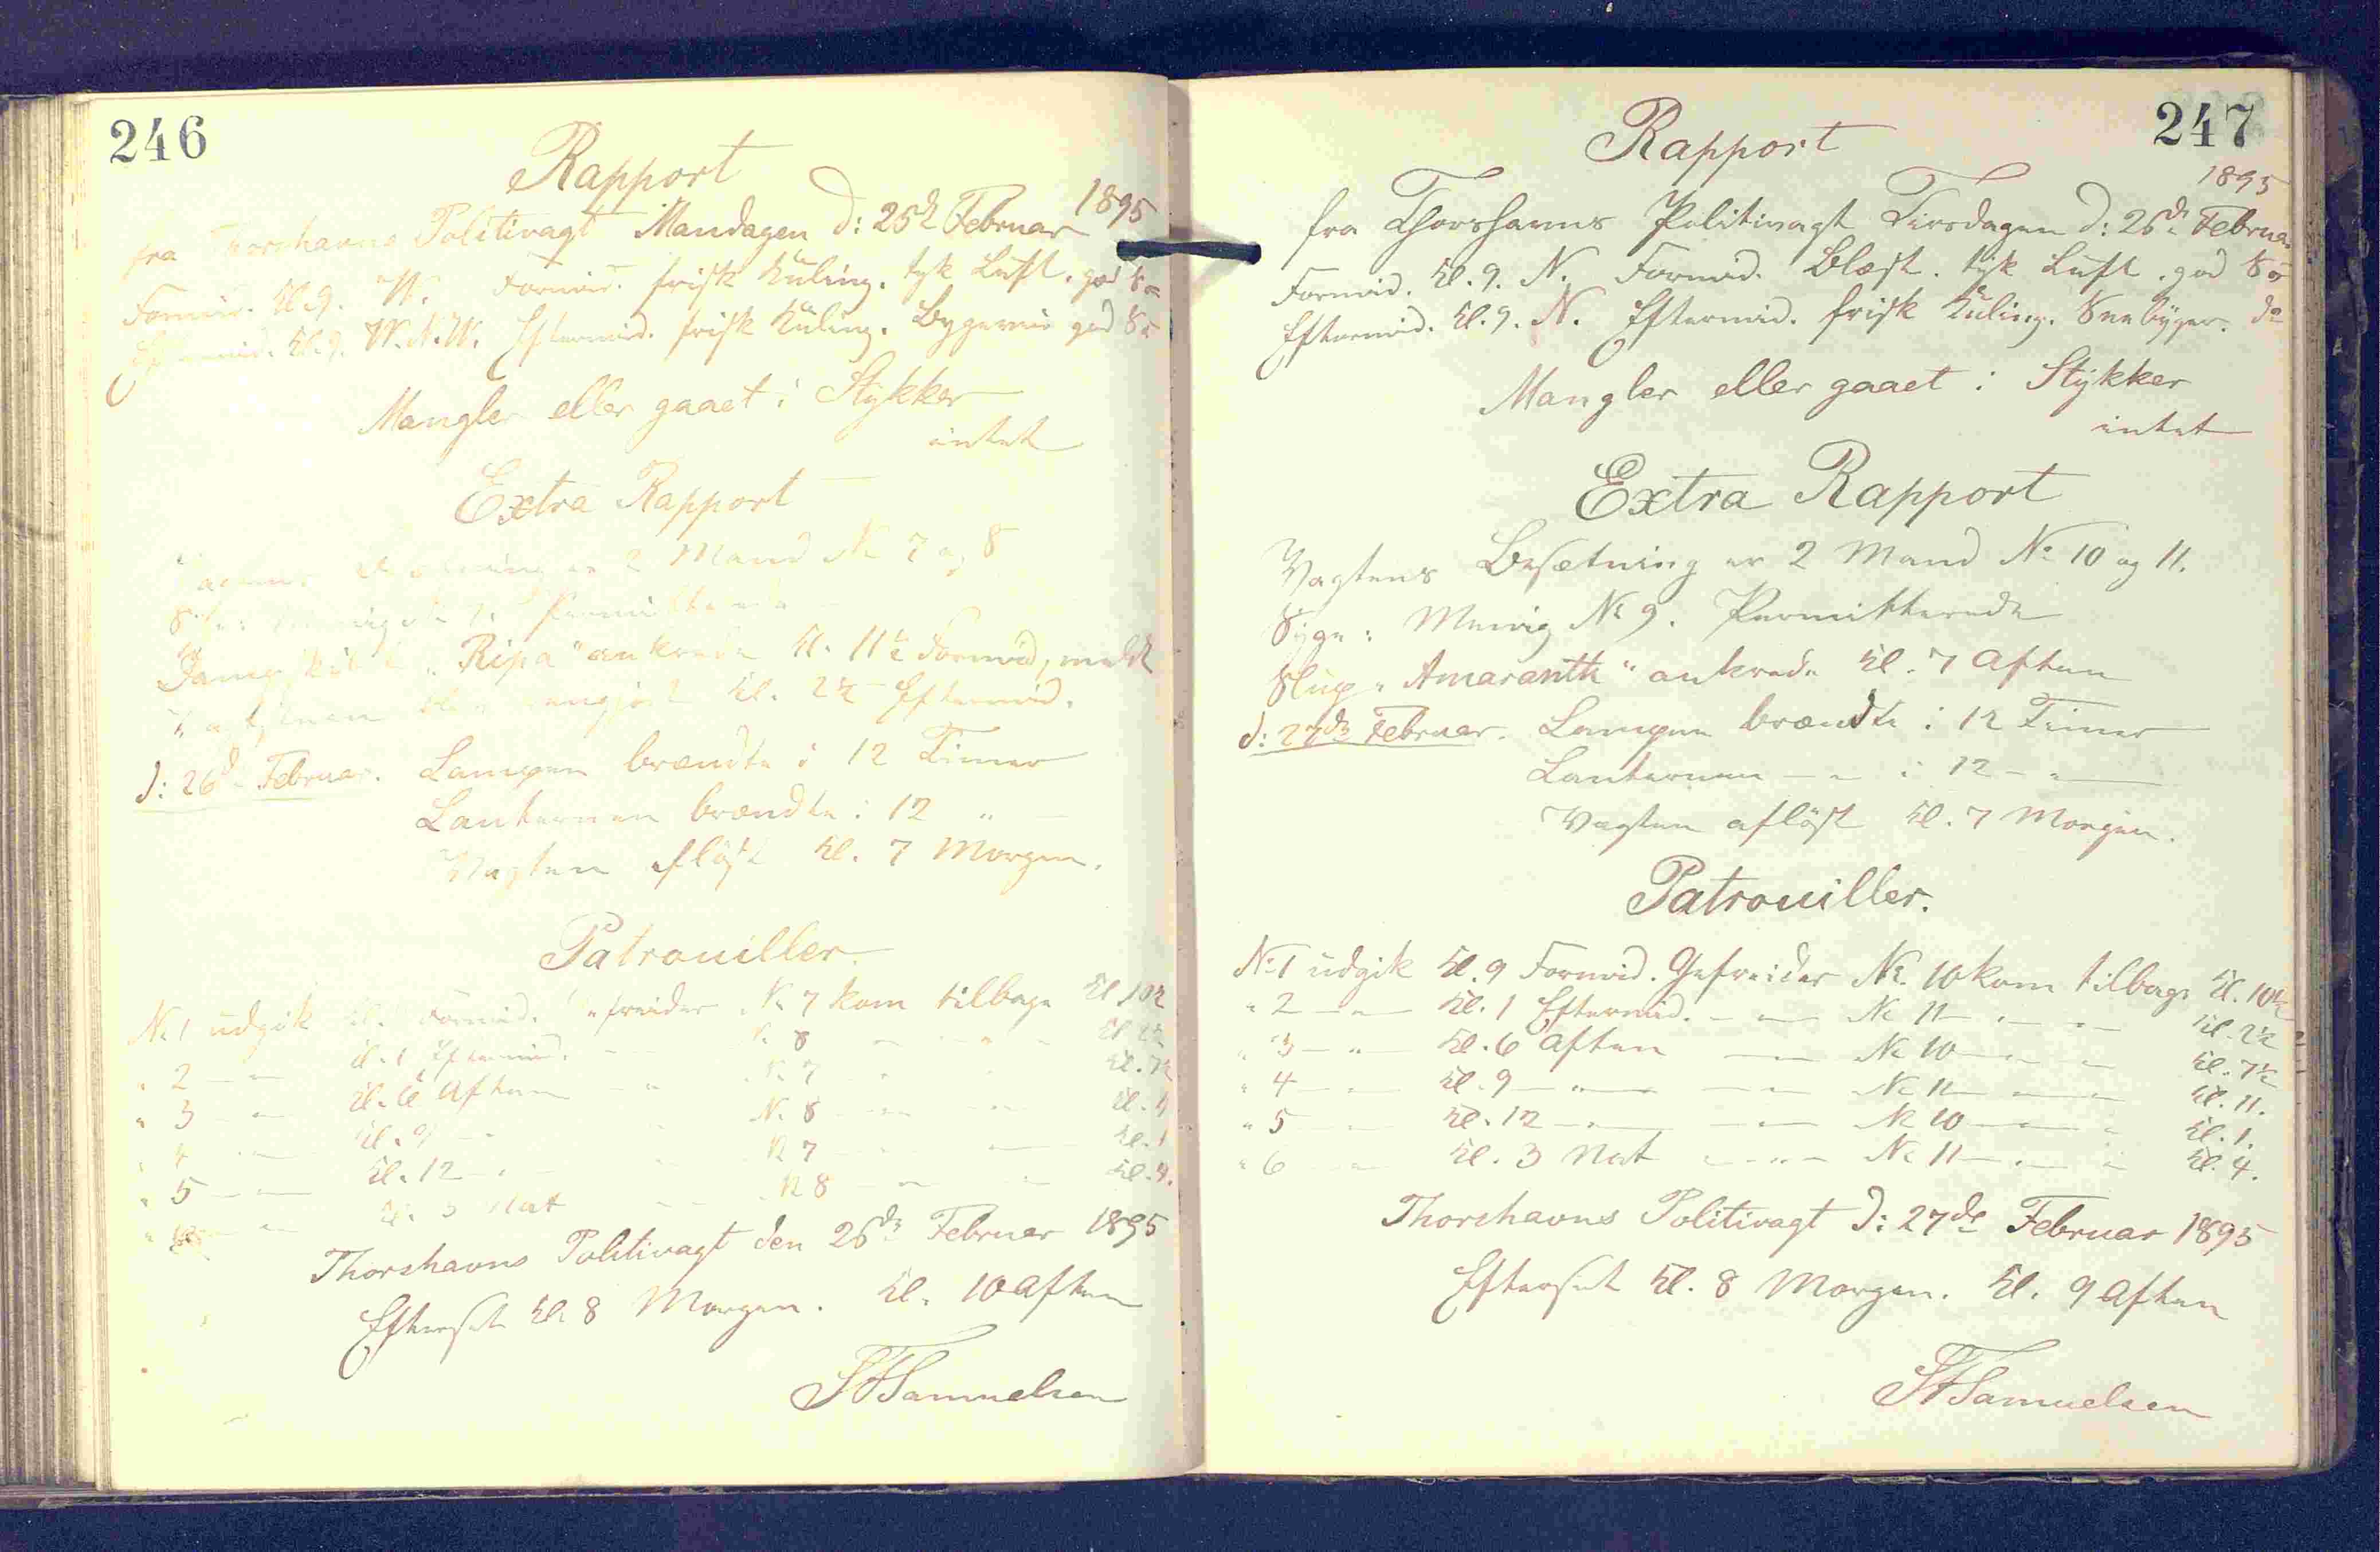 246
Rapport
1895
fra Thorshavns Politivagt Mandagen d: 25d Februar
Formid. Kl. 9. W. Formid. frisk Kuling. tyk Luft. god Sø
Eftermid. Kl. 9. W.N.W. Eftermid. frisk Kuling. Bygeveir god Sø
Mangler eller gaaet i Stykker
intet
Extra Rapport
Vagtens Besætning er 2 Mand No 7 og 8
Permitterede
Dampskibet "Ripa" ankrede Kl. 11½ Formid,
rengjort Kl. 2½ Eftermid.
d: 26d Februar. Lampen brændte i 12 Timer
Lanternen brændte i 12 "
Vagten afløst Kl. 7 Morgen.
Patrouiller.
No 1 udgik Kl. Formid. Gefreider No 7 kom tilbage Kl 10½
" 2 — " — Kl. 1 Eftermid. — No 8 — " — Kl 2½
" 3 — " — Kl. 6 Aften — " No 7 " Kl. 7½
" 4 — " — Kl. 9 — " No 8 — " — Kl. 11
" 5 — " — Kl. 12 — " No 7 — " — Kl. 1
" 6 — " Kl. 3 Nat — No 8 — " — Kl. 4.
Thorshavns Politivagt den 26de Februar 1895
Efterset Kl. 8 Morgen. Kl. 10 Aften
Samuelsen
247
Rapport
1895
fra Thorshavns Politivagt Tirsdagen d: 26de Februar
Formid. Kl. 9. N. Formid. Blæst. tyk Luft. god Sø
Eftermid. Kl. 9. N. Eftermid. frisk Kuling. Sneebyger. do
Mangler eller gaaet i Stykker
intet
Extra Rapport
Vagtens Besætning er 2 Mand No 10 og 11.
Syge: No 9. Permitterede
Slup "Amaranth" ankrede Kl. 7 Aften
d: 27de Februar. Lampen brændte i 12 Timer
Lanternen — " — i 12 — " —
Vagten afløst Kl. 7 Morgen.
Patrouiller.
No 1 udgik Kl. 9 Formid. Gefreider No 10 kom tilbage Kl. 10½
" 2 — " — Kl. 1 Eftermid. — " — No 11 — " — " — Kl. 2½
" 3 — " — Kl. 6 Aften — " — No 10 — " — " — Kl. 7½
" 4 — " — Kl. 9 — " — — " — No 11 — " — " — Kl. 11.
" 5 — " — Kl. 12 — " — — " — No 10 — " — " Kl. 1.
" 6 — " — Kl. 3 Nat — " — No 11 — " — " Kl. 4.
Thorshavns Politivagt d: 27de Februar 1895
Efterset Kl. 8 Morgen. Kl. 9 Aften
Samuelsen